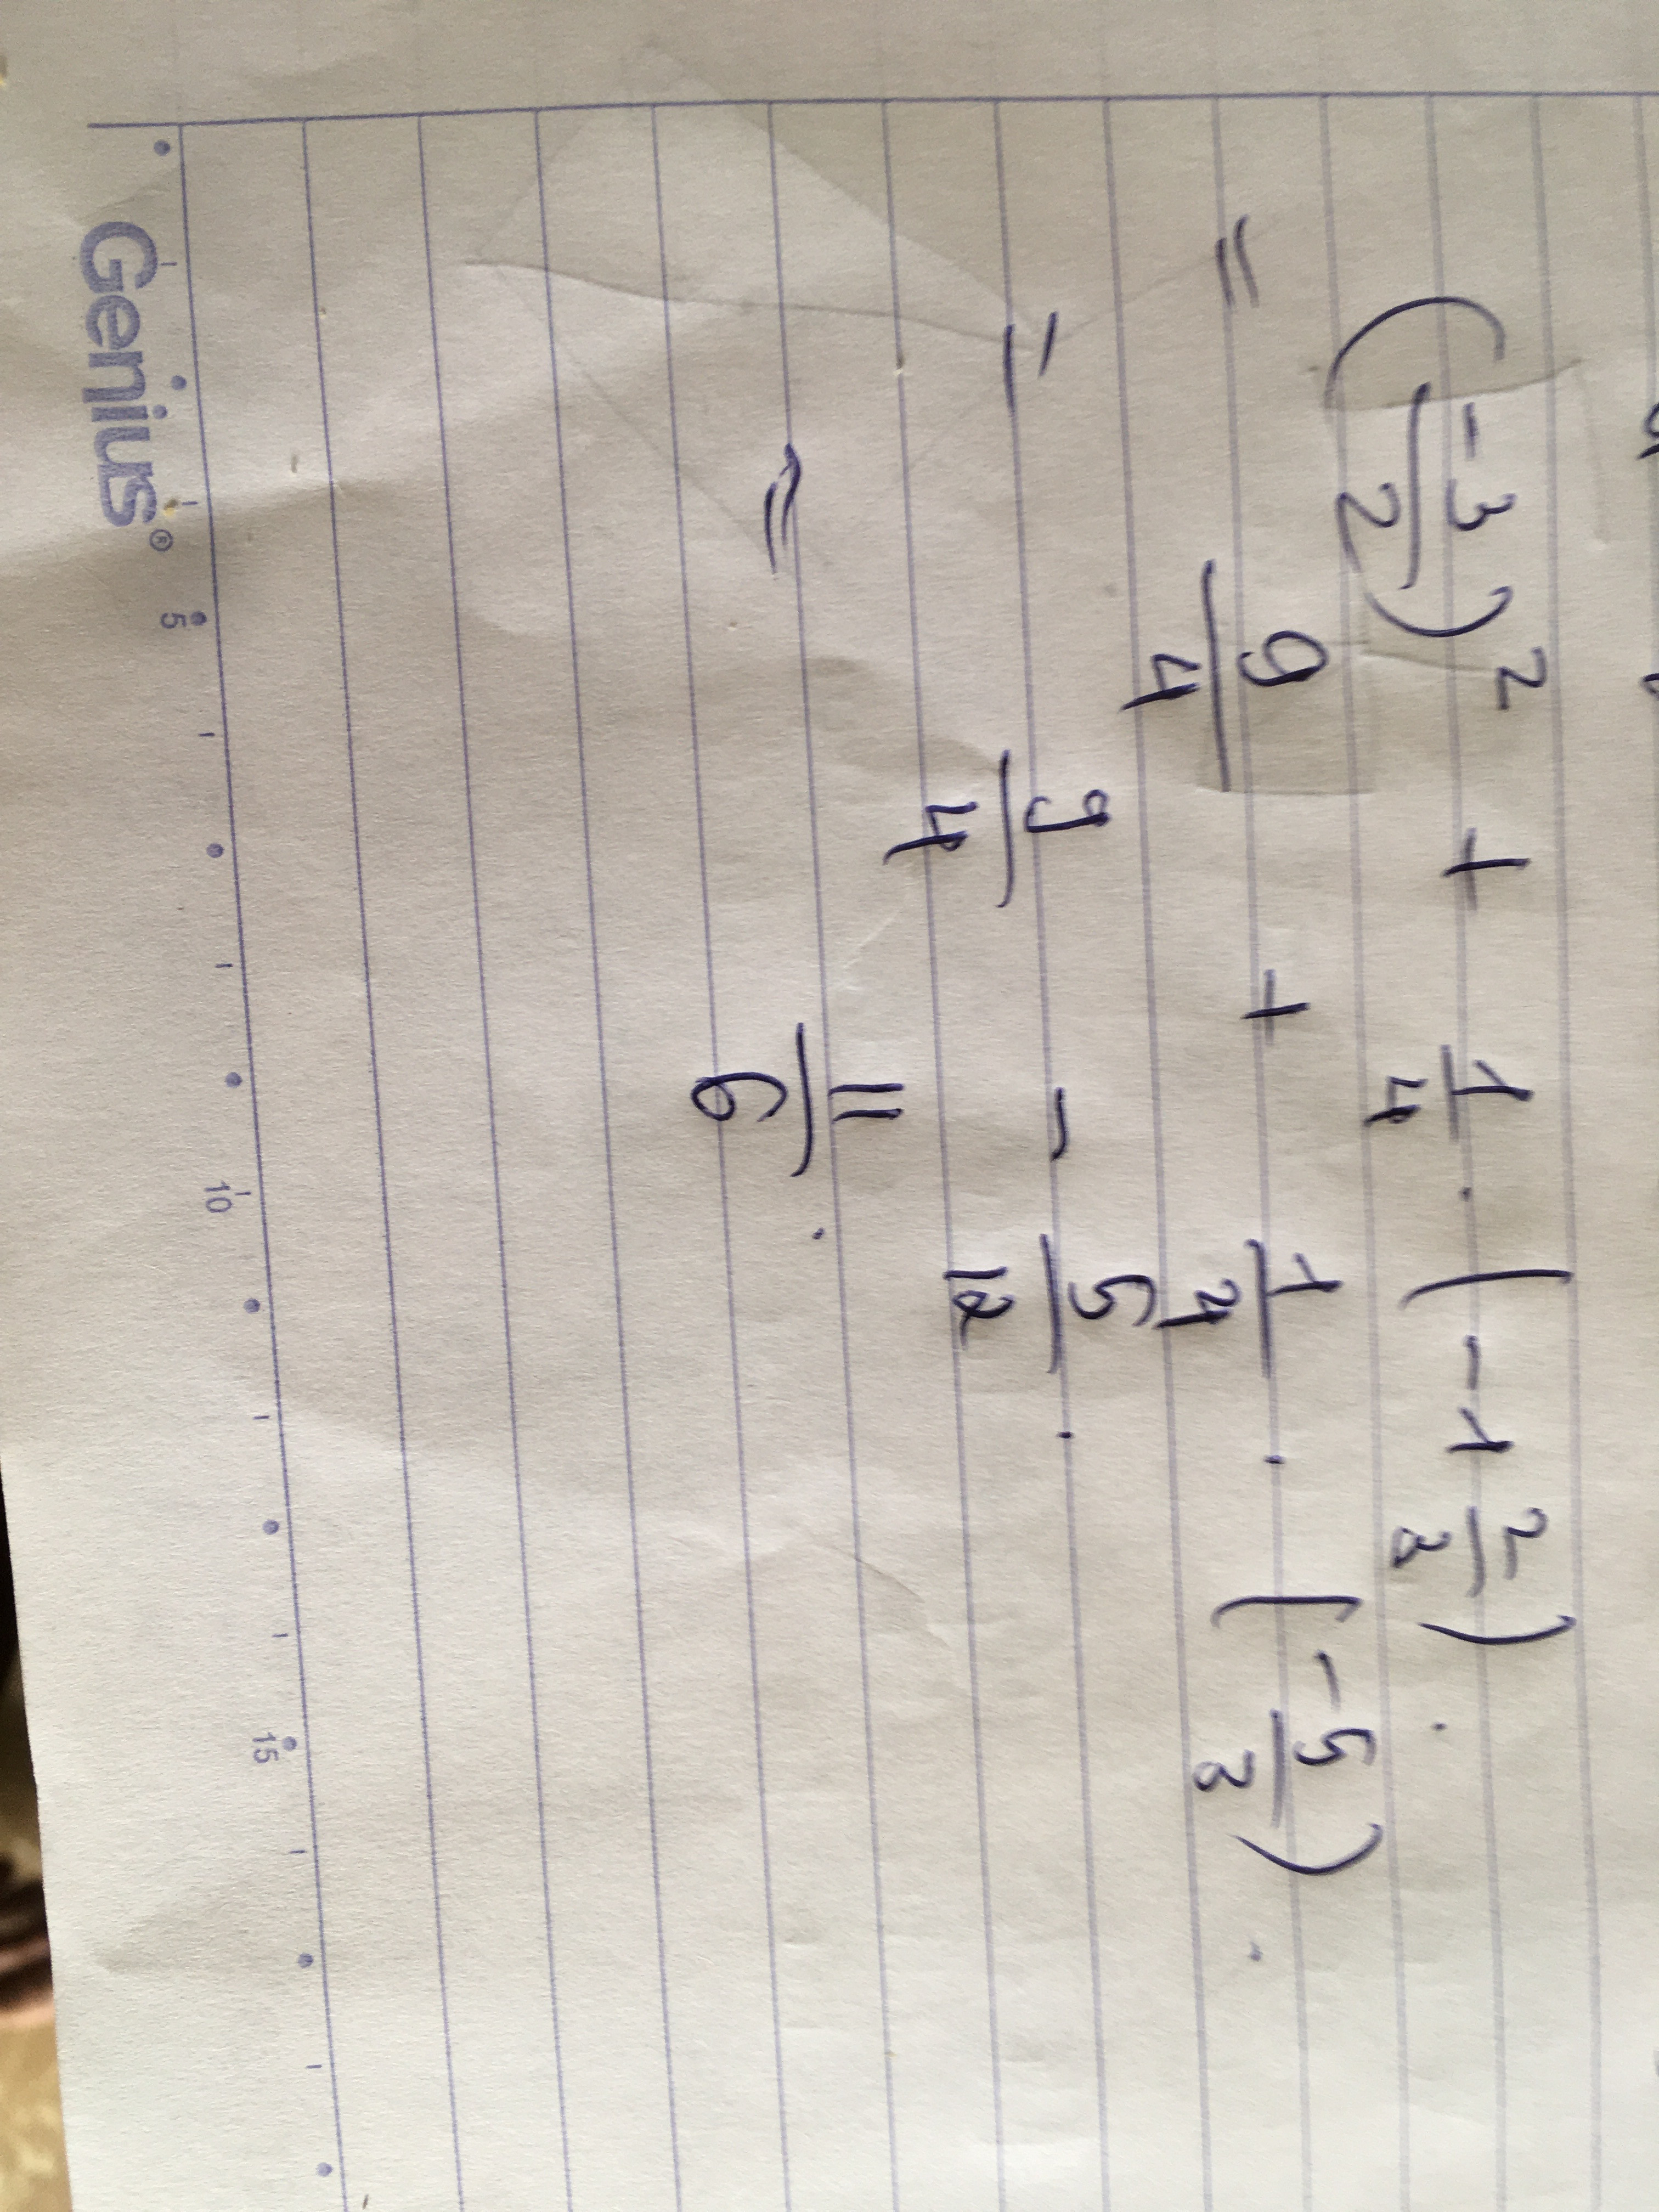 (-3/2)² + 1/4 · (-1 2/3) .
= 9/4 + 1/4 · (-5/3) .
= 9/4 - 5/12 .
= 11/6 .
Genius® 5 10 15